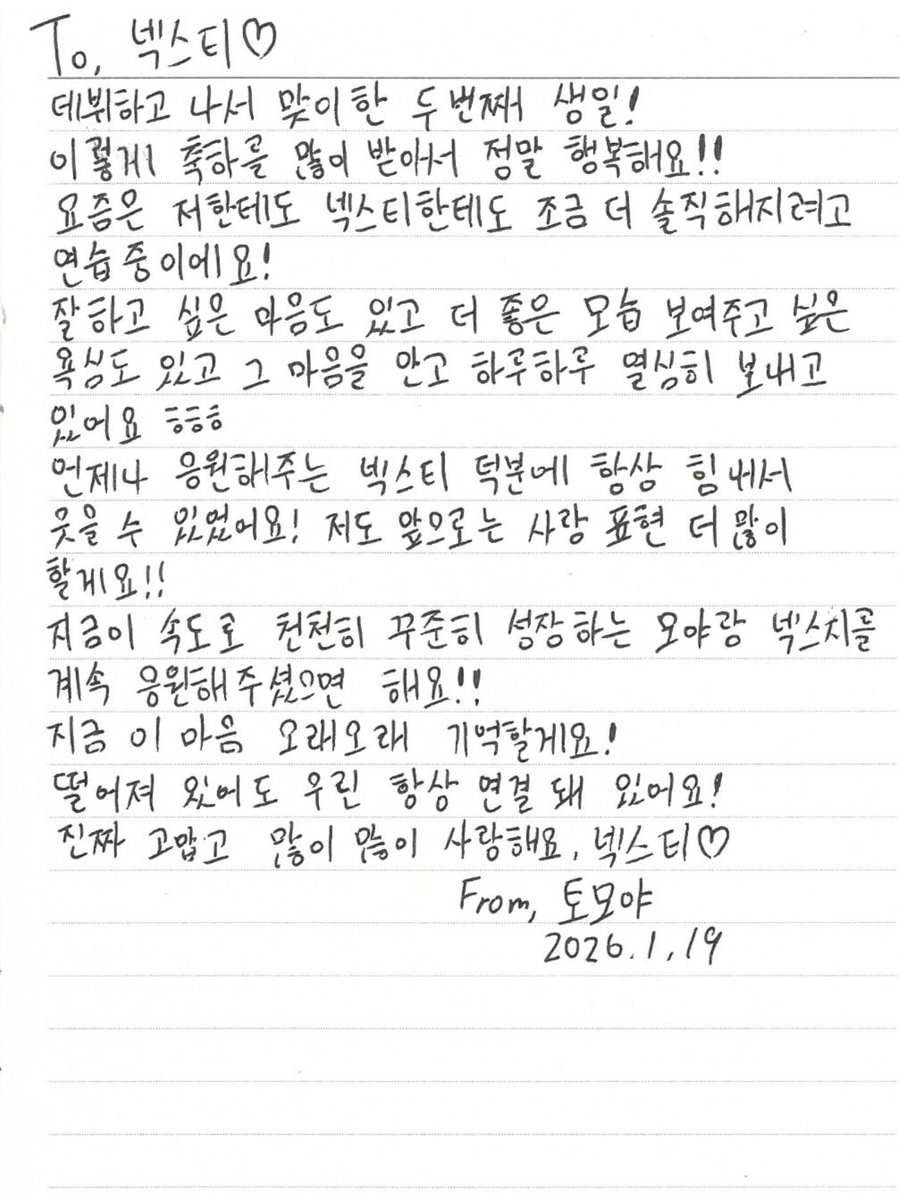 To, 넥스티♡
데뷔하고 나서 맞이한 두번째 생일!
이렇게 축하를 많이 받아서 정말 행복해요!!
요즘은 저한테도 넥스티한테도 조금 더 솔직해지려고
연습중이에요!
잘하고 싶은 마음도 있고 더 좋은 모습 보여주고 싶은
욕심도 있고 그 마음을 안고 하루하루 열심히 보내고
있어요 ㅎㅎㅎ
언제나 응원해주는 넥스티 덕분에 항상 힘내서
웃을 수 있었어요! 저도 앞으로는 사랑 표현 더 많이
할게요!!
지금이 속도로 천천히 꾸준히 성장하는 모야랑 넥스지를
계속 응원해주셨으면 해요!!
지금 이 마음 오래오래 기억할게요!
떨어져 있어도 우린 항상 연결 돼 있어요!
진짜 고맙고 많이 많이 사랑해요, 넥스티♡
From, 토모야
2026.1.19